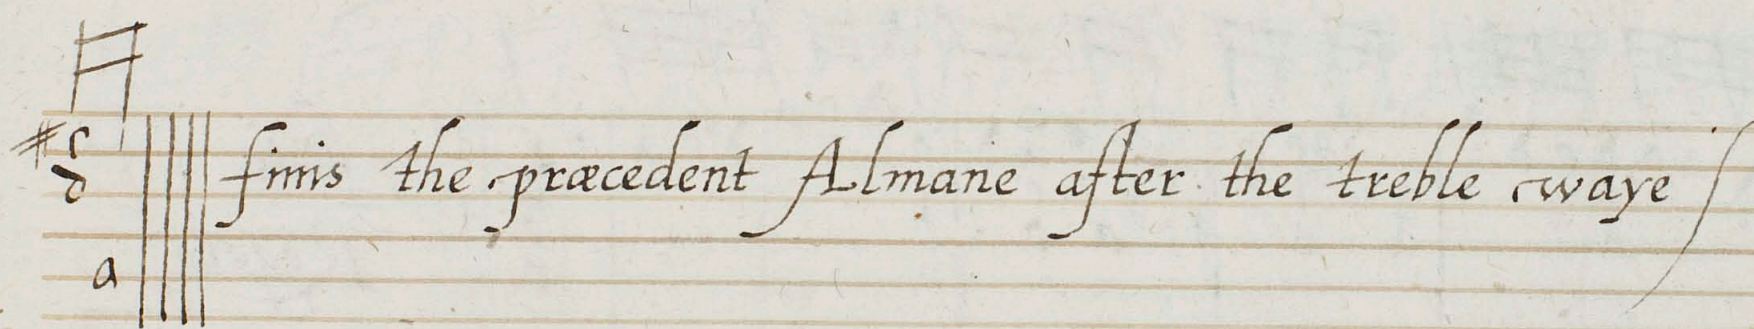 finis the præcedent Almane after the treble waye